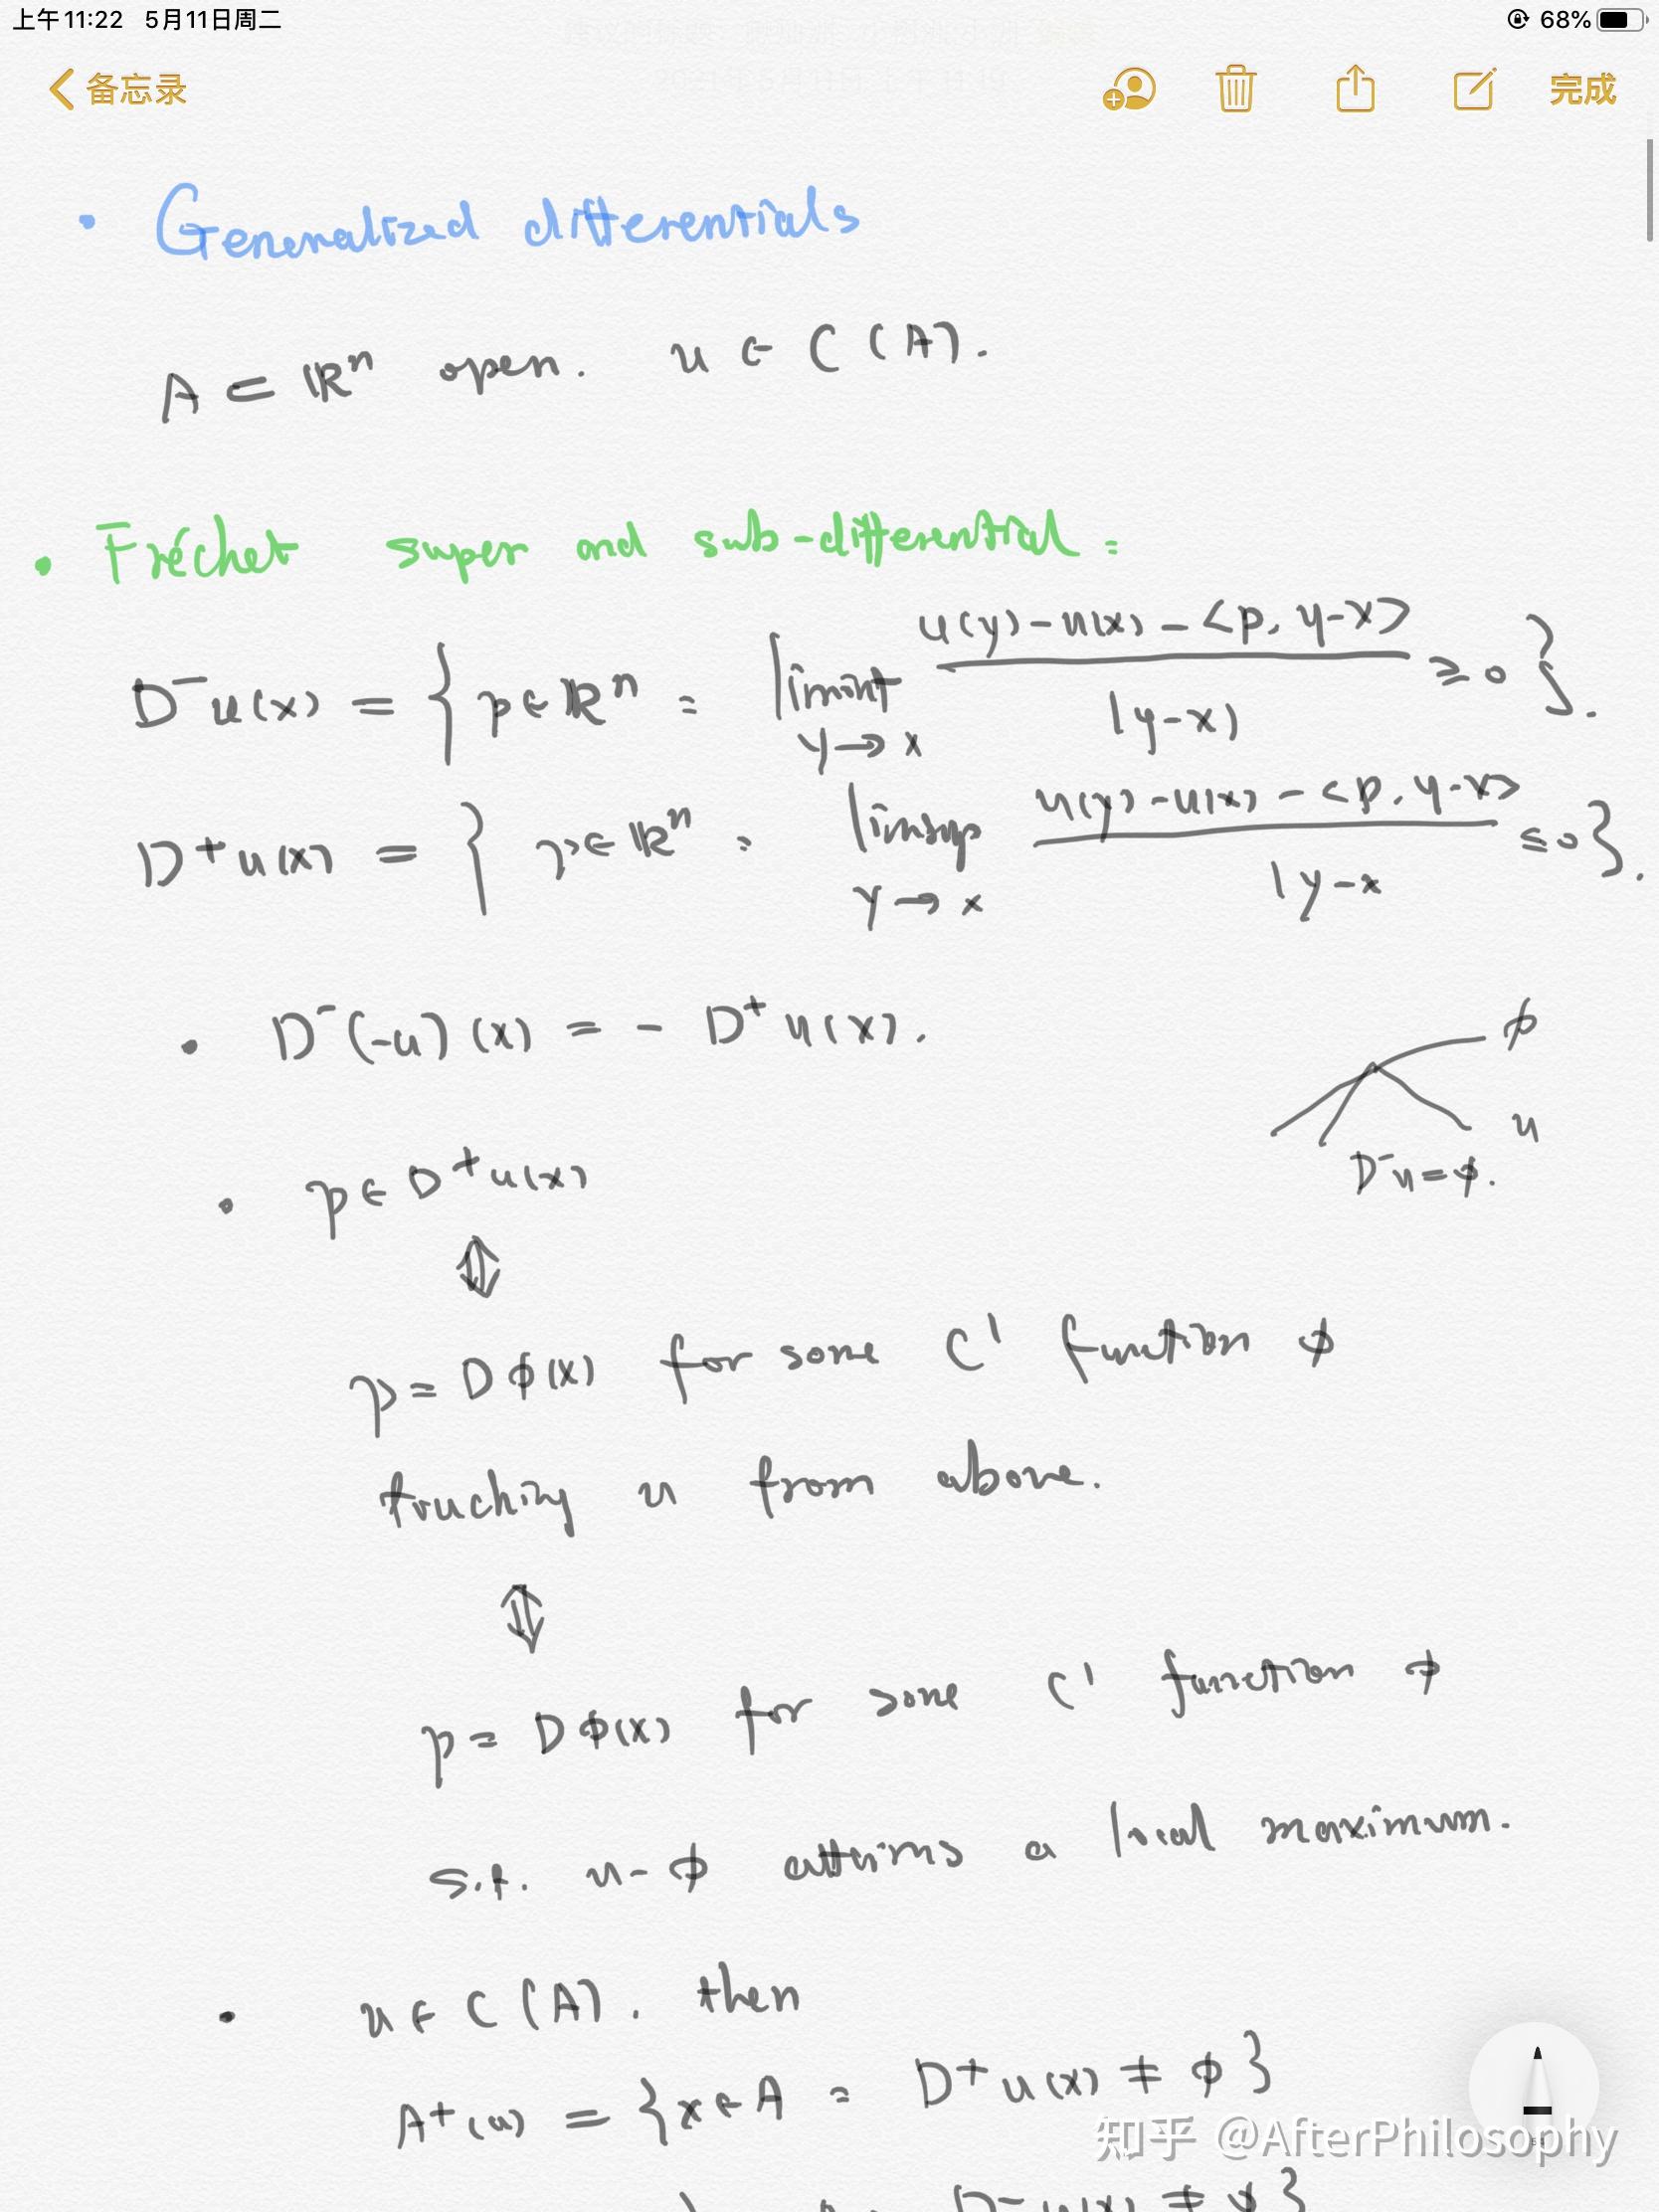 上午11:22 5月11日周二 68%
备忘录 完成
• Generalized differentials
A ⊂ ℝⁿ open. u ∈ C(A).
• Fréchet super and sub-differential:
D⁻u(x) = { p ∈ ℝⁿ : liminf_{y→x} (u(y) - u(x) - <p, y-x>) / |y-x| ≥ 0 }.
D⁺u(x) = { p ∈ ℝⁿ : limsup_{y→x} (u(y) - u(x) - <p, y-x>) / |y-x ≤ 0 }.
• D⁻(-u)(x) = - D⁺u(x).
ϕ
u
D⁻u = ϕ.
• p ∈ D⁺u(x)
⇕
p = Dϕ(x) for some C¹ function ϕ
truching u from above.
⇕
p = Dϕ(x) for some C¹ function ϕ
s.t. u - ϕ attains a local maximum.
• u ∈ C(A). then
A⁺(u) = { x ∈ A : D⁺u(x) ≠ ϕ }
知乎 @AfterPhilosophy